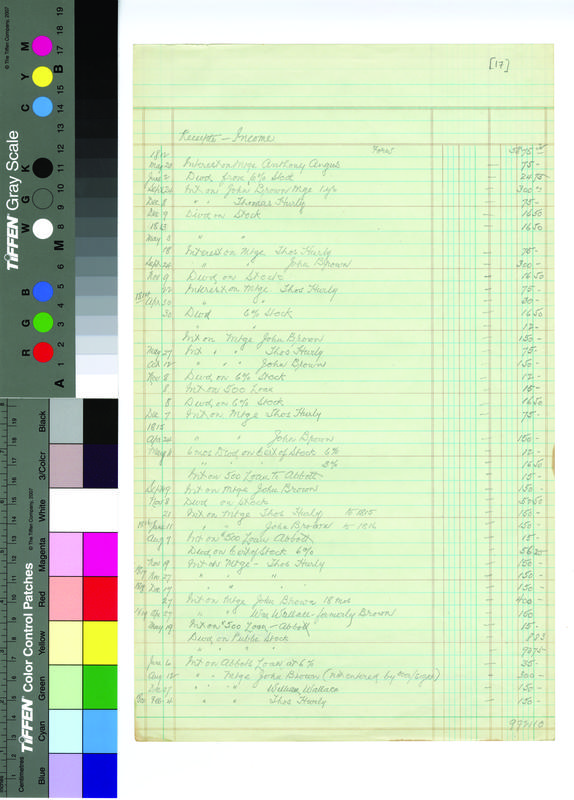 [17]
Receipts — Income
Forw 5875
1812
May 20 Interest on Mtge Anthony Angus 75 -
June 2 Divd from 6% Stock 24.75
Sept 24 Int on John Brown Mge 1 yr 300
Dec 8 " " Thomas Hurly 75 -
Dec 9 Divd on Stock 16 50
1813
May 8 " " 16 50
18 Interest on Mtge Thos Hurly 75 -
Sept 24 " " John Brown 300 -
Nov 9 Divd on Stock 16 50
22 Interest on Mtge Thos Hurly 75 -
1814 Apr 30 " " 30 -
30 Divd 6% Stock 16 50
" " 12 -
Int on Mtge John Brown 150 -
May 27 Int " " Thos Hurly 75 -
Oct 12 " " " John Brown 150 -
Nov 8 Divd on 6% Stock 12 -
8 Int on 500 Loan 15 -
8 Divd on 6% Stock 16 50
Dec 7 Int on Mtge Thos Hurly 75 -
1815
Apr 24 " " John Brown 150 -
May 8 6 mos Divd on Cert of Stock 6% 12 -
" " " 3% 16 50
Int on 500 Loan To Abbott 15 -
Sept 9 Int on Mtge John Brown 150 -
Nov 8 Divd on Stock
21 Int on Mtge Thos Hurly To 1815 150 -
1816 June 11 " " John Brown to 1816 150 -
Aug 9 Int on $500 Loan Abbott 15 -
Divd on Cert of Stock 6% 56 25
Nov 19 Int on Mtge - Thos Hurly 150 -
Nov 27 " " " 150 -
Dec 17 " " " 150 -
27 Int on Mtge John Brown 18 mos 400 -
1819 Apr 27 " " Wm Wallace - formerly Brown 150
May 19 Int on $500 Loan - Abbott 15 -
Divd on Public Stock 8 83
" " "
June 6 Int on Abbotts Loan at 6% 35 -
Aug 12 " " Mtge John Brown (not entered by) 300 -
Dec " " William Wallace 150 -
Feb 4 " " Thos Hurly 150 -
9721 10
TIFFEN Gray Scale
© The Tiffen Company, 2007
R G B W G K C Y M
A 1 2 3 4 5 6 M 8 9 10 11 12 13 14 15 B 17 18 19
TIFFEN Color Control Patches
© The Tiffen Company, 2007
Centimetres
Blue
Cyan
Green
Yellow
Red
Magenta
White
3/Color
Black